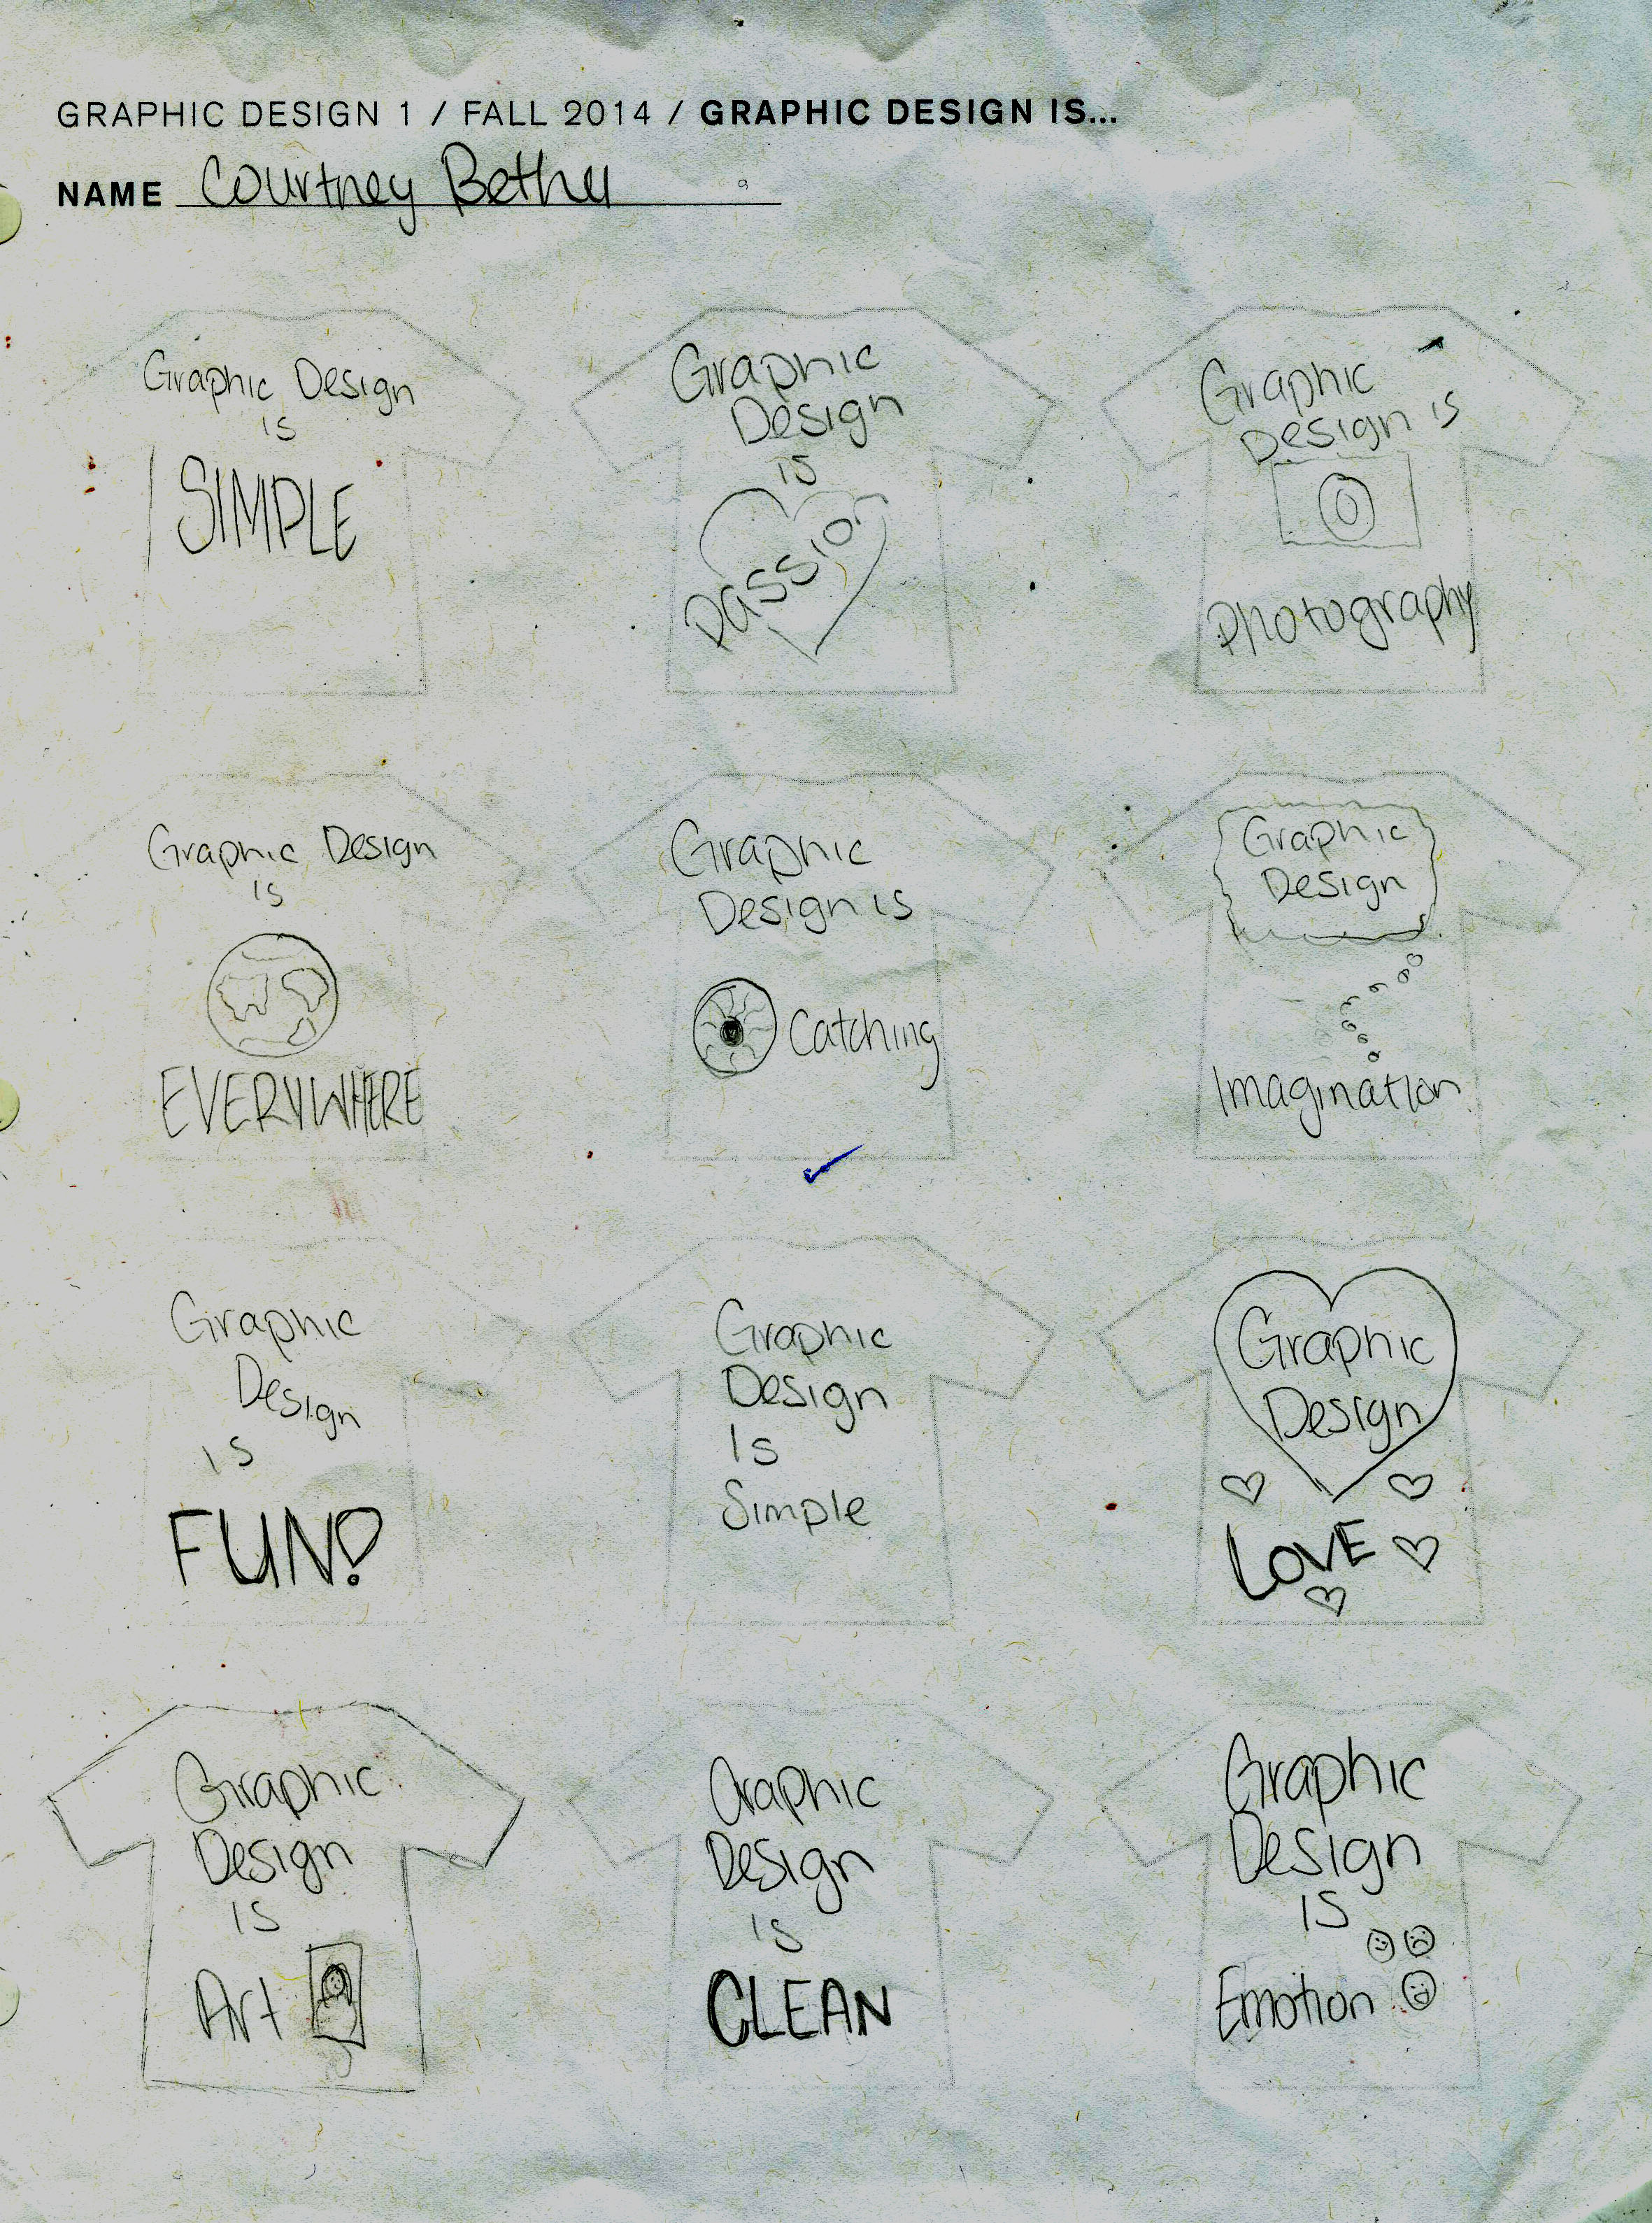 GRAPHIC DESIGN 1 / FALL 2014 / GRAPHIC DESIGN IS...
NAME Courtney
Graphic Design
is
SIMPLE
Graphic
Design
is
Passion
Graphic
Design is
Photography
Graphic Design
is
EVERYWHERE
Graphic
Design is
Catching
Graphic
Design
Imagination
Graphic
Design
is
FUN!
Graphic
Design
Is
Simple
Graphic
Design
LOVE
Graphic
Design
is
Art
Graphic
Design
is
CLEAN
Graphic
Design
is
Emotion